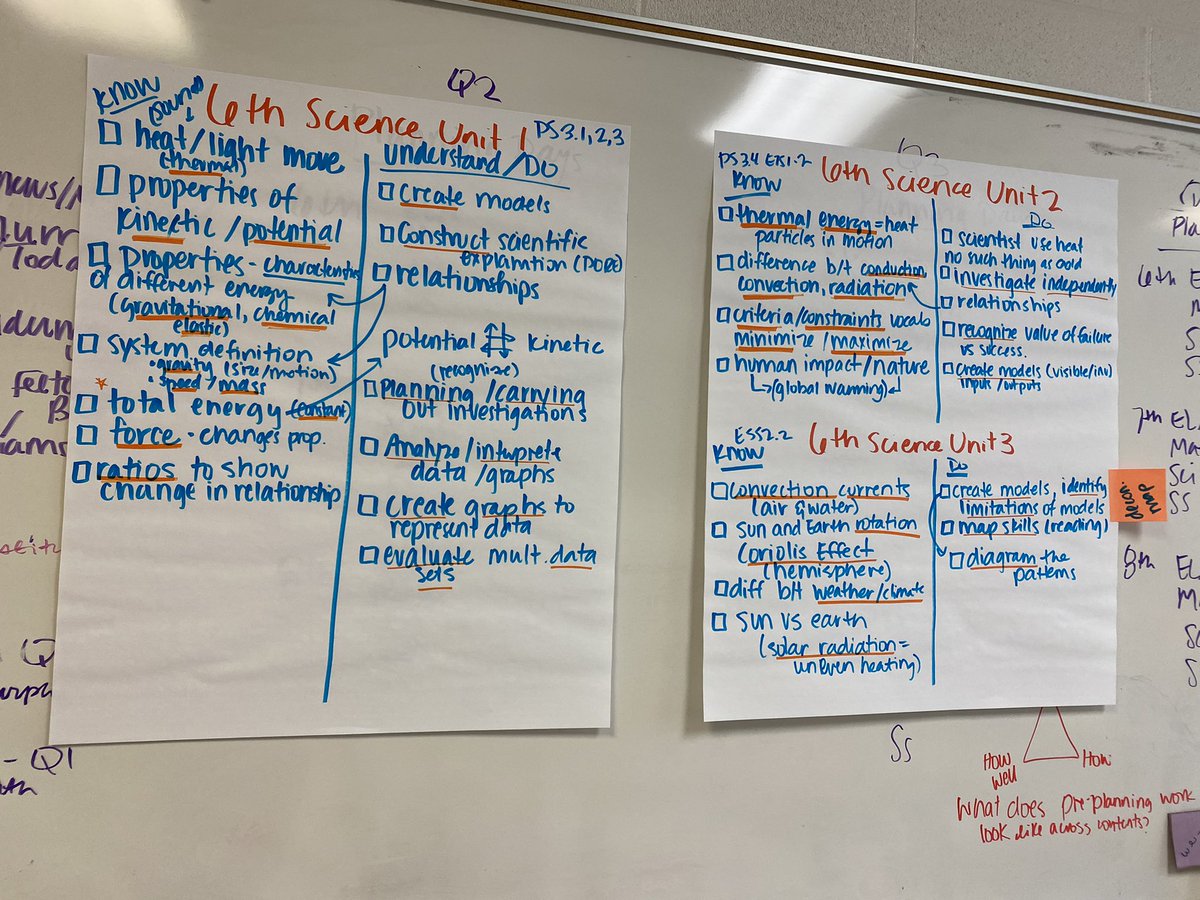 Q2
6th Science Unit 1
PS3.1,2,3
Know
(sound)
heat/light move
(thermal)
properties of
kinectic/potential
Properties - characteristics
of different energy
(gravitational, chemical
elastic)
System definition
• gravity (size/motion)
• speed/mass
total energy (constant)
force - changes prop.
ratios to show
change in relationship
understand/Do
create models
Construct scientific
explanation
relationships
potential kinetic
(recognize)
Planning/carrying
out investigations
Analyze/interprete
data/graphs
create graphs to
represent data
evaluate mult. data
sets
PS3.4
6th Science Unit 2
Know
thermal energy = heat
particles in motion
difference b/t conduction
convection, radiation
criteria/constraints vocab
minimize/maximize
human impact/nature
(global warming)
Do
scientist use heat
no such thing as cold
investigate independently
relationships
recognize value of failure
vs success.
create models (visible/inv)
inputs/outputs
ESS2.2
6th Science Unit 3
Know
convection currents
(air & water)
Sun and Earth rotation
Coriolis Effect
(hemisphere)
diff b/t weather/climate
Sun vs earth
(solar radiation =
uneven heating)
Do
create models, identify
limitations of models
map skills (reading)
diagram the
patterns
map
6th
7th
8th
Ss
How
well
How
What does pre-planning work
look like across contents?
- Q1